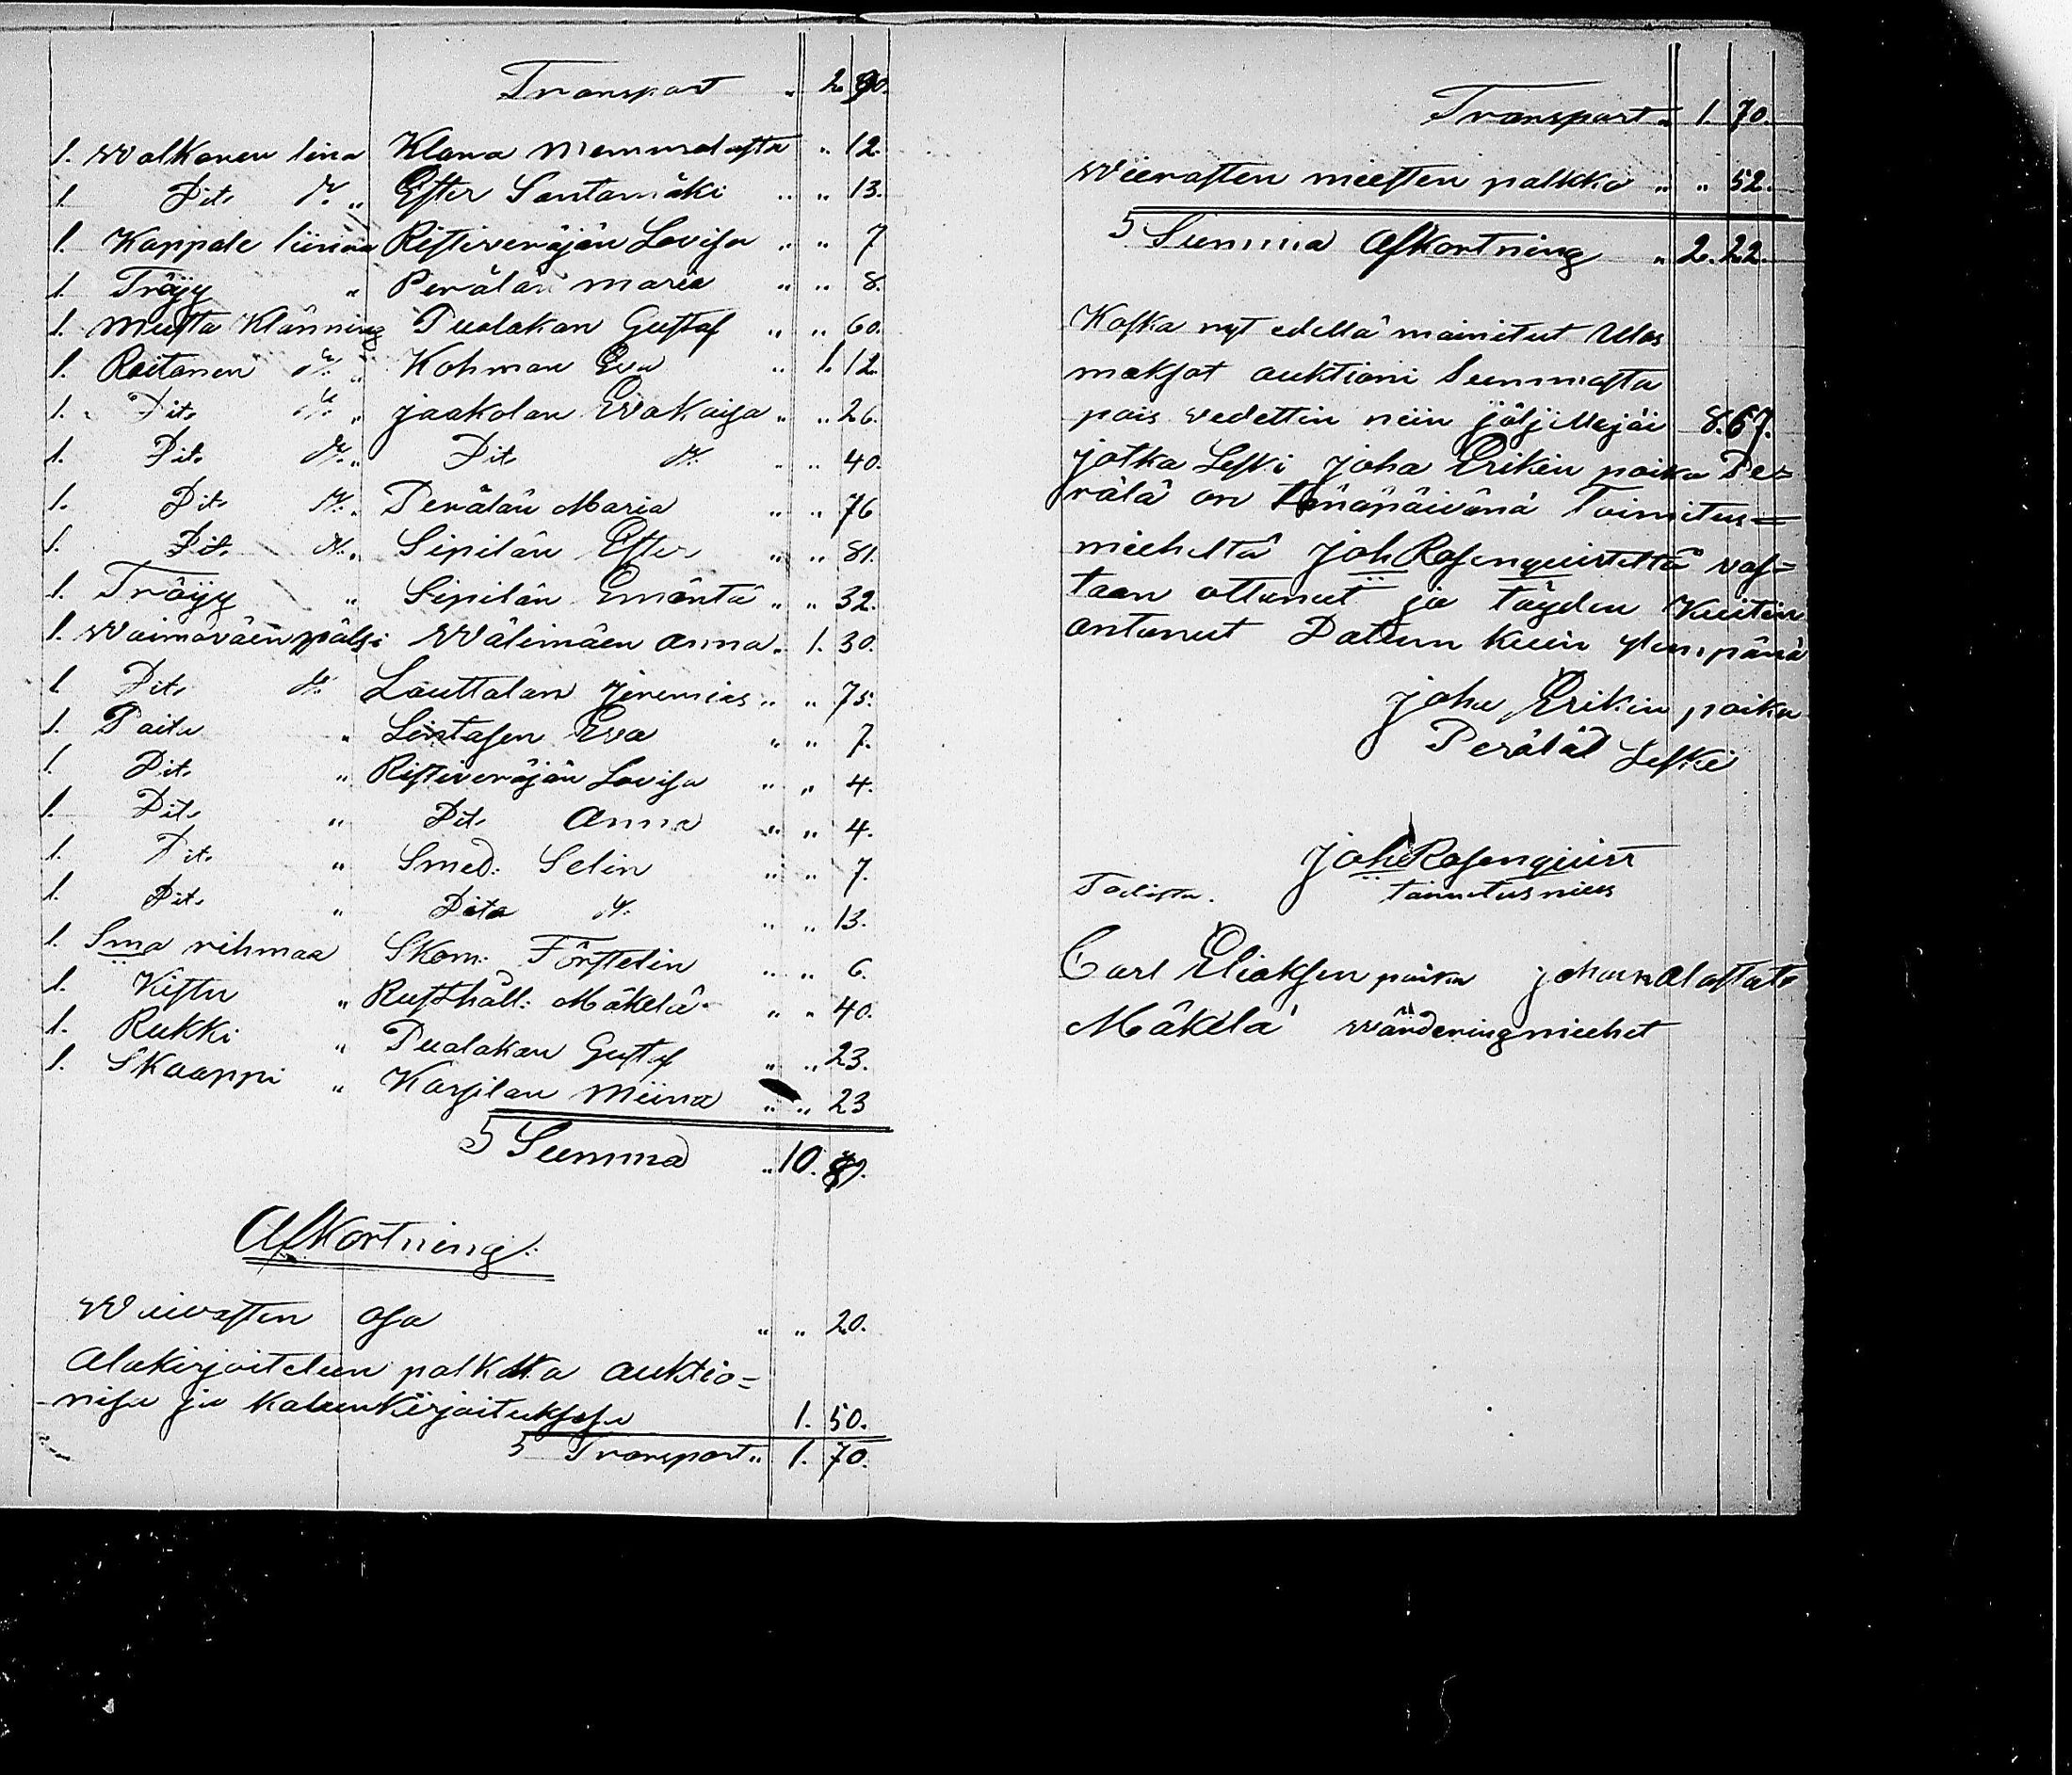 Transport " 2. 90.
1. Walkonen lina Klara Memmelasta " 12.
1 Dit. d:o " Ester Santamäki " " 13.
1. Kappale liinaa Ristiveräjän Lovisa " " 7
1. Tröyy " Perälän maria " " 8.
1. Musta Klänning Puolakan Gustaf " " 60.
1. Raitanen d:o " Kohman Eva " 1. 12.
1. Dit. d:o " jaakolan Ewa Kaisa " " 26.
1. Dit. d:o " Dit. d:o " " 40.
1. Dit. d:o " Perälän Maria " " 76
1. Dit. d:o " Sipilän Ester " " 81.
1. Tröyy " Sipilän Emäntä " " 32.
1. Waimoväen pälsi Wälimäen anna " 1. 30.
1 Dit. d:o Lauttalan Jeremias " " 75.
1. Paita " Lintasen Eva " " 7.
1. Dit. " Ristiveräjän Lovisa " " 4.
1. Dit. " Dit. Anna " " 4.
1. Dit. " Smed: Selin " " 7.
1. Dit. " Dito d:o " " 13.
1. Sma rihmaa Skom: Förstelin " " 6.
1. Kistu " Rusthåll: Mäkelä " " 40.
1. Rukki " Puolakan Gustaf " " 23.
1. Skaappi " Karsilan Miina " " 23
Summa " 10. 89.
Afkortning:
Waivasten osa " " 20.
Alakirjoitetun palkka auktio=
nisa ja kalunkirjoituksesa 1. 50.
Transport " 1. 70.
Transport " 1. 70.
Wierasten miesten palkka " " 52.
Summa Afkortning " 2. 22.
Koska nyt edellä mainitut Ulos
maksot auktioni Summasta
pois vedettin niin jälj Mejäi 8. 67.
jotka Leski Joha Erikin poika Pe=
rälä on tänäpäivänä Toimitus=
mieheltä Joh Rosenquisteltä vas=
taan ottanut ja täyden Kuitin
antanut Datum kuin ylempänä
Joha Erikin poika
Perälä Leski
Joh Rosenquist
Todista. toimitus mies
Carl Eliaksen poika Johan Alastalo
Mäkelä wärderingmiehet